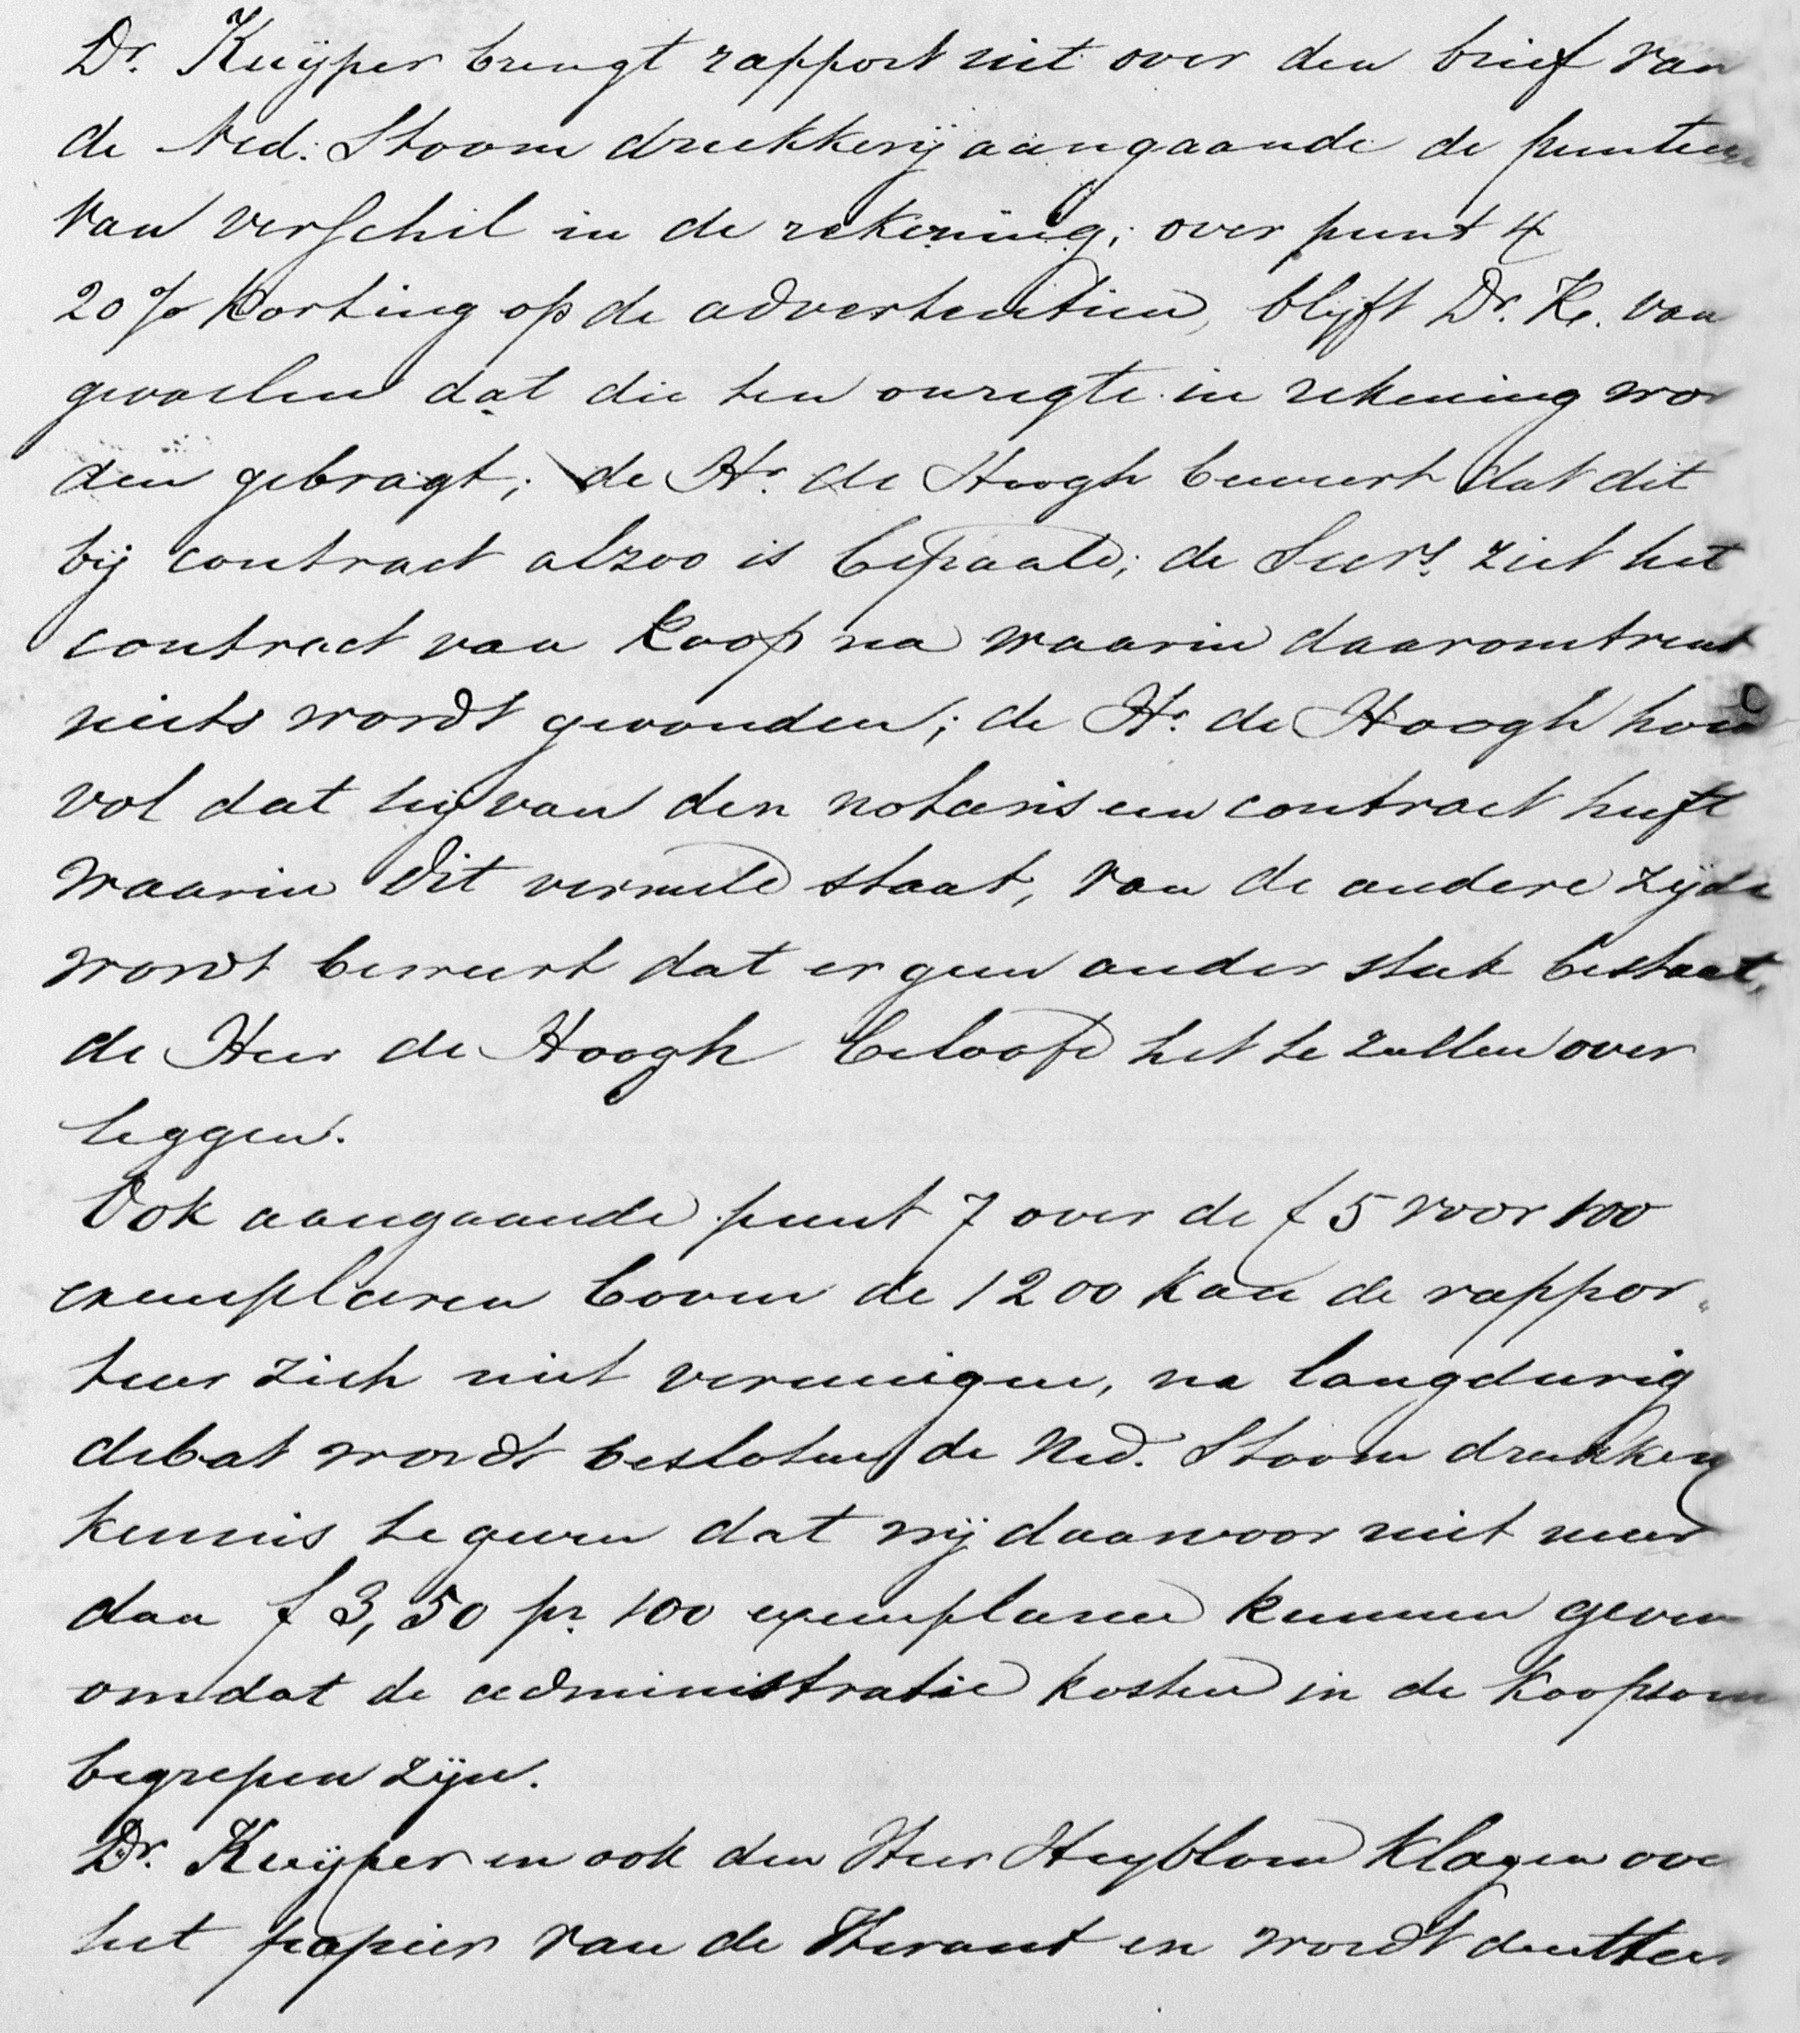 Dr. Kuÿper brengt rapport uit over den brief van
de Ned. Stoom drukkerij aangaande de punten
van verschil in de rekening; over punt 4
20% korting op de advertentien, blijft Dr. K. van
gevoelen dat die ten onregte in rekening wor
den gebragt; de Hr. de Hoogh beweert dat dit
bij contract alzoo is bepaald; de Secrs. ziet het
contract van koop na waarin daaromtrent
niets wordt gevonden; de Hr. de Hoogh houd
vol dat hij van den notaris een contract heeft
waarin dit vermeld staat, van de andere zijde
wordt beweert dat er geen ander stuk bestaat,
de Heer de Hoogh beloofd het te zullen over
leggen.
Ook aangaande punt 7 over de f 5 voor 100
exemplaren boven de 1200 kan de rappor-
teur zich niet vereenigen, na langdurig
debat wordt besloten de Ned. Stoom drukkerij
kennis te geven dat wij daarvoor niet meer
dan f 3,50 pr. 100 exemplaren kunnen geven
omdat de administratie kosten in de koopsom
begrepen zijn.
Dr. Kuÿper en ook den Heer Heyblom klagen over
het papier van de Heraut en wordt